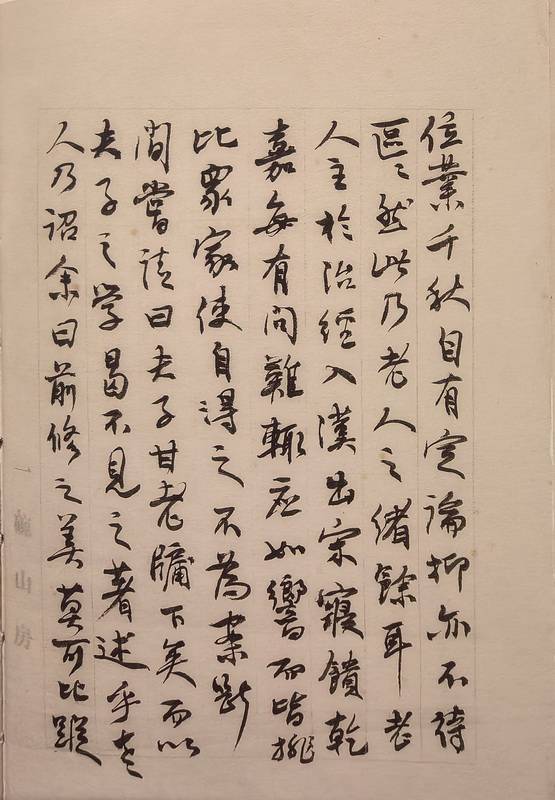 位業千秋自有定論抑亦不待
區〻然此乃老人之緒餘耳老
人主於治經入漢出宋寢饋乾
嘉每有問難輒應如響而皆排
比眾家使自得之不為案斷
間嘗請曰夫子甘老牖下矣而以
夫子之学曷不見之著述乎老
人乃詔余曰前修之美莫可比蹤
山房